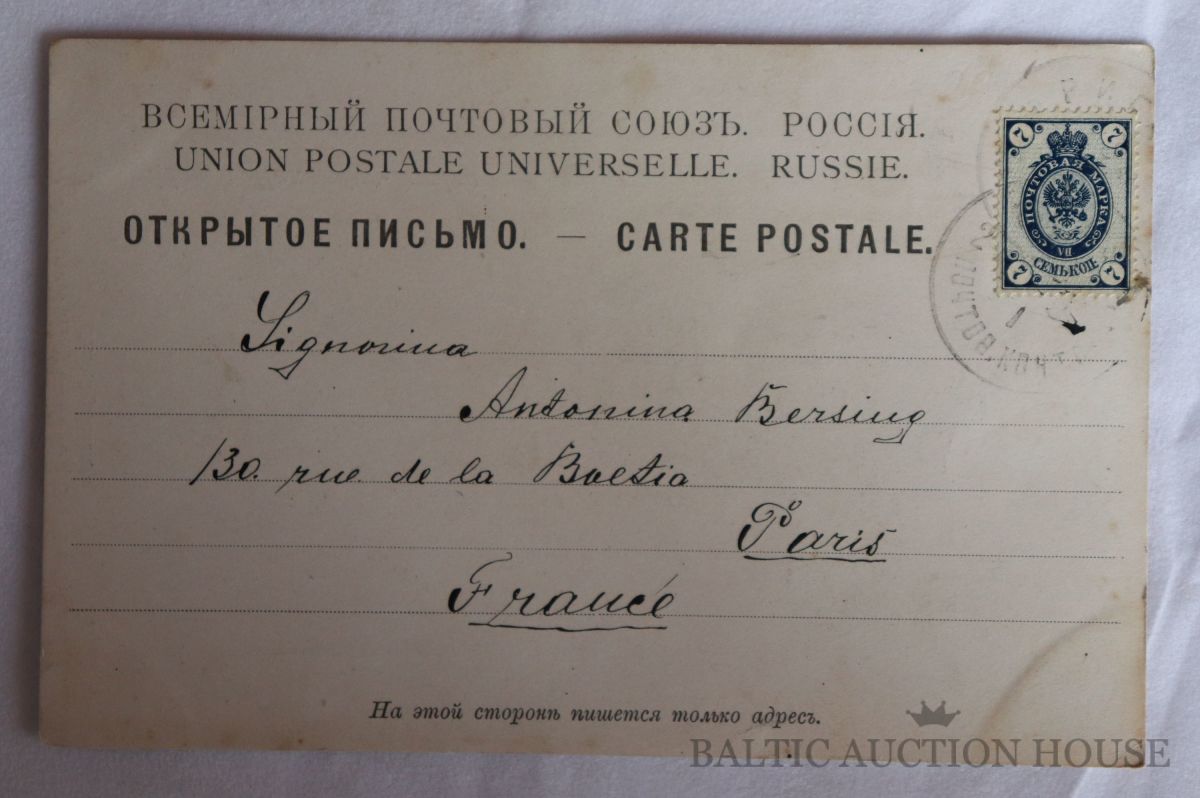 ВСЕМІРНЫЙ ПОЧТОВЫЙ СОЮЗЪ. РОССІЯ.
UNION POSTALE UNIVERSELLE. RUSSIE.
ОТКРЫТОЕ ПИСЬМО. — CARTE POSTALE.
7 7
ПОЧТОВАЯ МАРКА
VII
СЕМЬ КОП.
7 7
Signorina
Antonina Bersing
130. rue de la Boetia
Paris
France
На этой сторонѣ пишется только адресъ.
BALTIC AUCTION HOUSE